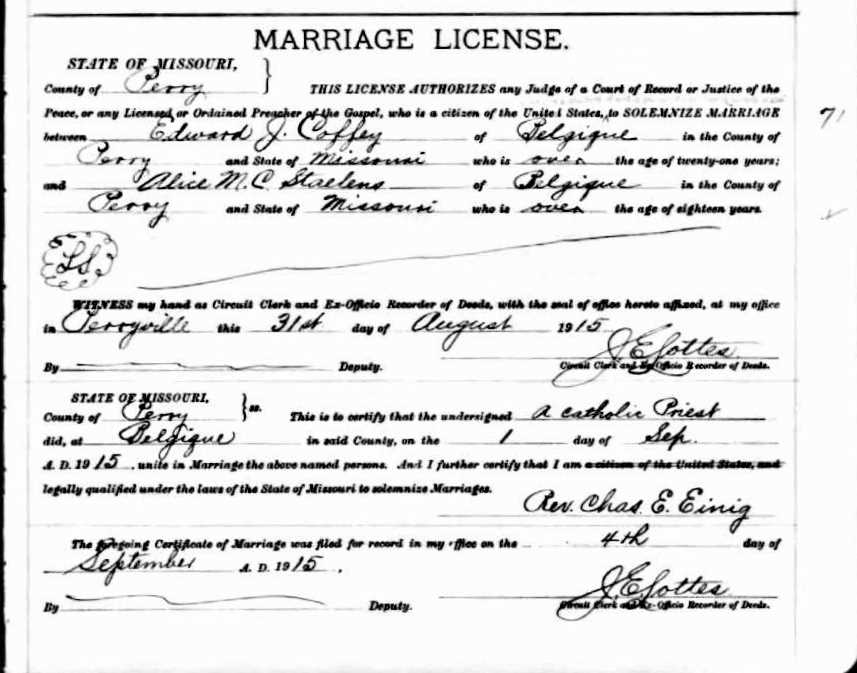 MARRIAGE LICENSE.
STATE OF MISSOURI,
County of Perry } THIS LICENSE AUTHORIZES any Judge of a Court of Record or Justice of the
Peace, or any Licensed or Ordained Preacher of the Gospel, who is a citizen of the United States, to SOLEMNIZE MARRIAGE
71
between Edward J. Coffey of Belgique in the County of
Perry and State of Missouri who is over the age of twenty-one years;
and Alice M. C. Staelens of Belgique in the County of
Perry and State of Missouri who is over the age of eighteen years.
LS
WITNESS my hand as Circuit Clerk and Ex-Officio Recorder of Deeds, with the seal of office hereto affixed, at my office
in Perryville this 31st day of August 1915
J E Lottes
By Deputy. Circuit Clerk and Ex-Officio Recorder of Deeds.
STATE OF MISSOURI,
County of Perry } ss. This is to certify that the undersigned a catholic Priest
did, at Belgique in said County, on the 1 day of Sep.
A. D. 1915, unite in Marriage the above named persons. And I further certify that I am a citizen of the United States, and
legally qualified under the laws of the State of Missouri to solemnize Marriages.
Rev. Chas. E. Einig
The foregoing Certificate of Marriage was filed for record in my office on the 4th day of
September A. D. 1915.
J E Lottes
By Deputy. Circuit Clerk and Ex-Officio Recorder of Deeds.